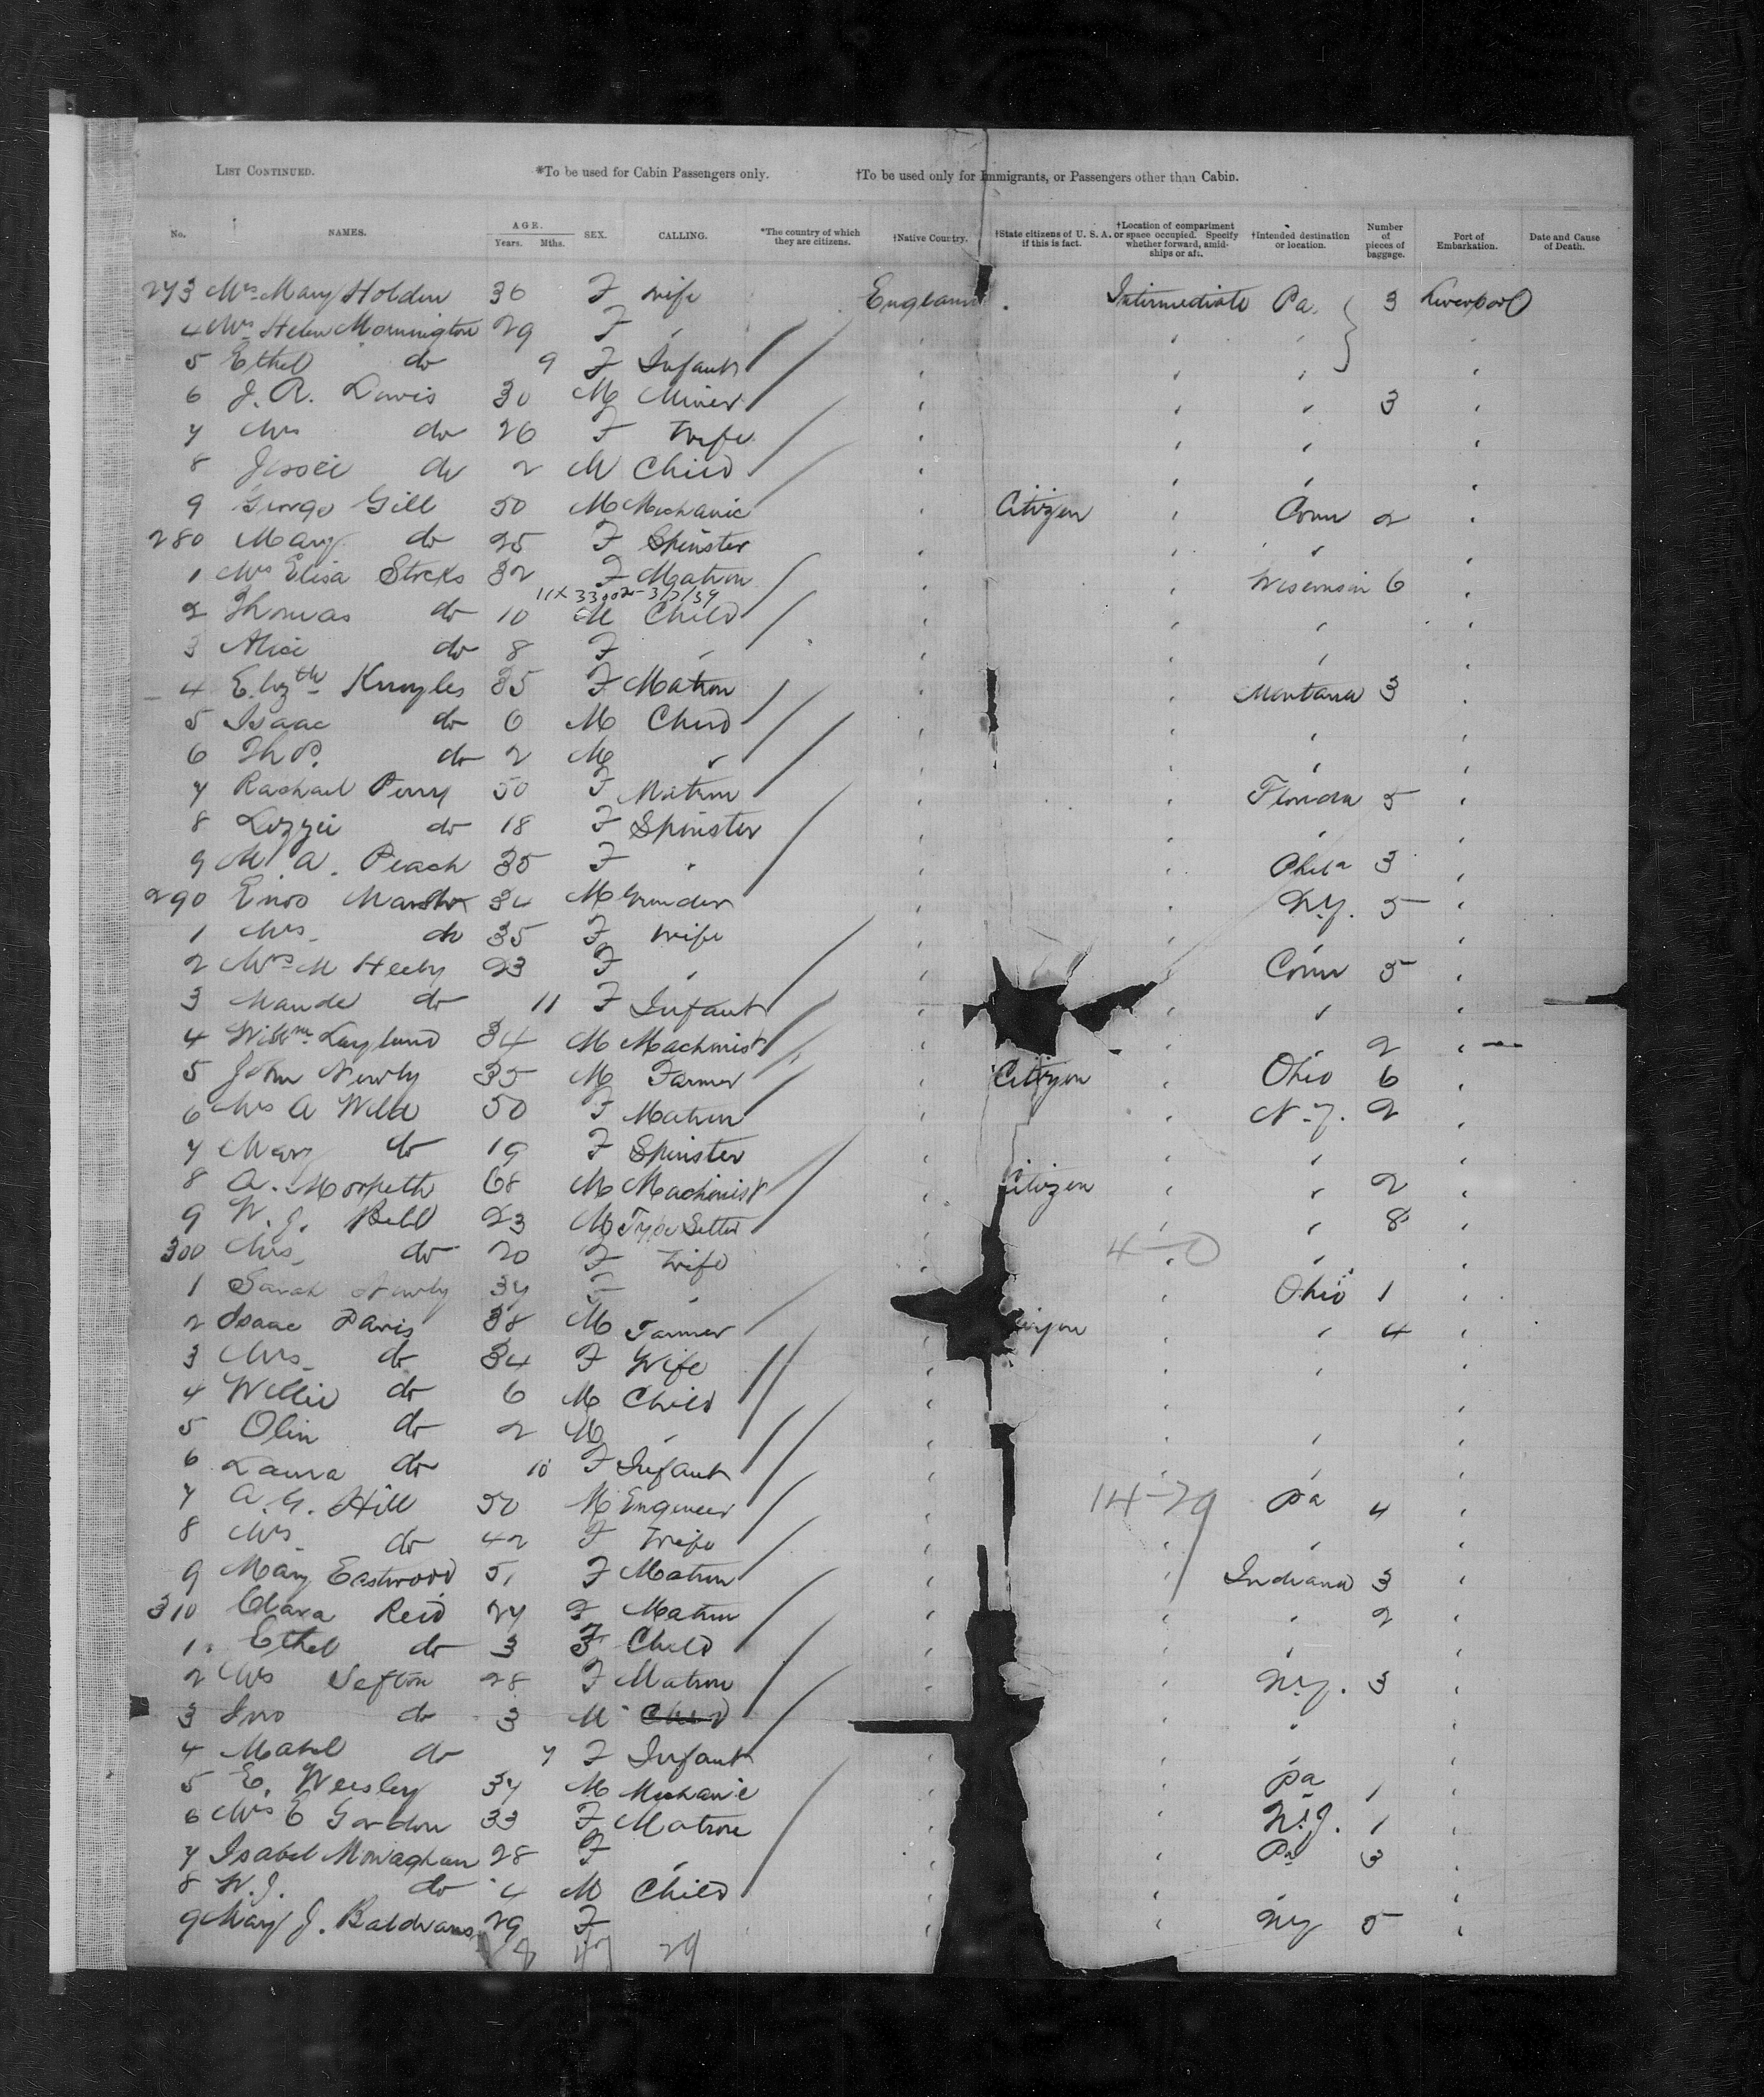 LIST CONTINUED. *To be used for Cabin Passengers only. †To be used only for Immigrants, or Passengers other than Cabin.
No. NAMES. AGE. Years. Mths. SEX. CALLING. *The country of which they are citizens. †Native Country. †State citizens of U. S. A. if this is fact. †Location of compartment or space occupied. Specify whether forward, amidships or aft. †Intended destination or location. Number of pieces of baggage. Port of Embarkation. Date and Cause of Death.
273 Mrs Mary Holden 36 F wife England Intermediate Pa. 3 Liverpool
4 Mrs Helen Mornington 29 F "
5 Ethel do 9 F Infant
6 J. A. Davis 30 M Miner " 3
7 Mrs do 26 F Wife
8 Jessie do 2 M Child
9 George Gill 50 M Mechanic Citizen Conn 2
280 Mary do 25 F Spinster
1 Mrs Elisa Stocks 32 F Matron Wisconsin 6
11X 33002 - 3/7/39
2 Thomas do 10 M Child
3 Alice do 8 F "
4 Elizth Knoyles 35 F Matron Montana 3
5 Isaac do 6 M Child
6 Thos. do 2 M "
7 Rachael Perry 50 F Matron Florida 5
8 Lizzie do 18 F Spinster
9 M. A. Peach 35 F " Phila 3
290 Enos 34 M Grinder N.Y. 5
1 Mrs do 35 F wife
2 Mrs M Heeley 23 F " Conn 5
3 Maude do 11 F Infant
4 Willm Layland 34 M Machinist " 2
5 John Newby 35 M Farmer Citizen Ohio 6
6 Mrs A Wild 50 F Matron N.Y. 2
7 Mary do 19 F Spinster
8 A. Morpeth 68 M Machinist Citizen " 2
9 W. J. Bell 23 M Type Setter " 8
300 Mrs do 20 F Wife 4-0
1 Sarah Newby 37 F " Ohio 1
2 Isaac Davis 38 M Farmer " 4
3 Mrs do 34 F Wife
4 Willie do 6 M Child
5 Olin do 2 M "
6 Laura do 10 F Infant
7 A. G. Hill 50 M Engineer 14-29 Pa 4
8 Mrs do 42 F Wife
9 Mary Eastwood 51 F Matron Indiana 3
310 Clara Reid 27 F Matron " 2
1 Ethel do 3 F Child
2 Mrs Sefton 28 F Matron N.Y. 3
3 Jno do 3 M Child
4 Mabel do 7 F Infant
5 E. Weesley 37 M Mechanic Pa 1
6 Mrs E Gordon 33 F Matron N.J. 1
7 Isabel Monaghan 28 F " Pa 3
8 W. J. do 4 M Child
9 Mary J. Baldwans 29 F NY 5
18 47 29